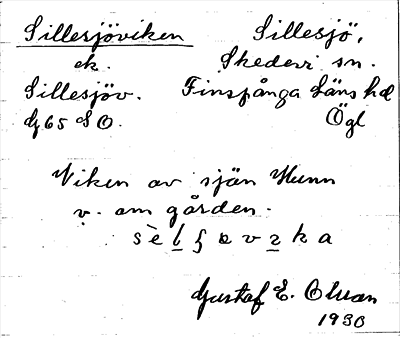 Sillesjöviken Sillesjö,
ek. Skedevi sn.
Sillesjöv. Finspånga Läns hd
Gj 65 SO. Ögl
Viken av sjön Hunn
v. om gården.
Gustaf E. Olsson
1930